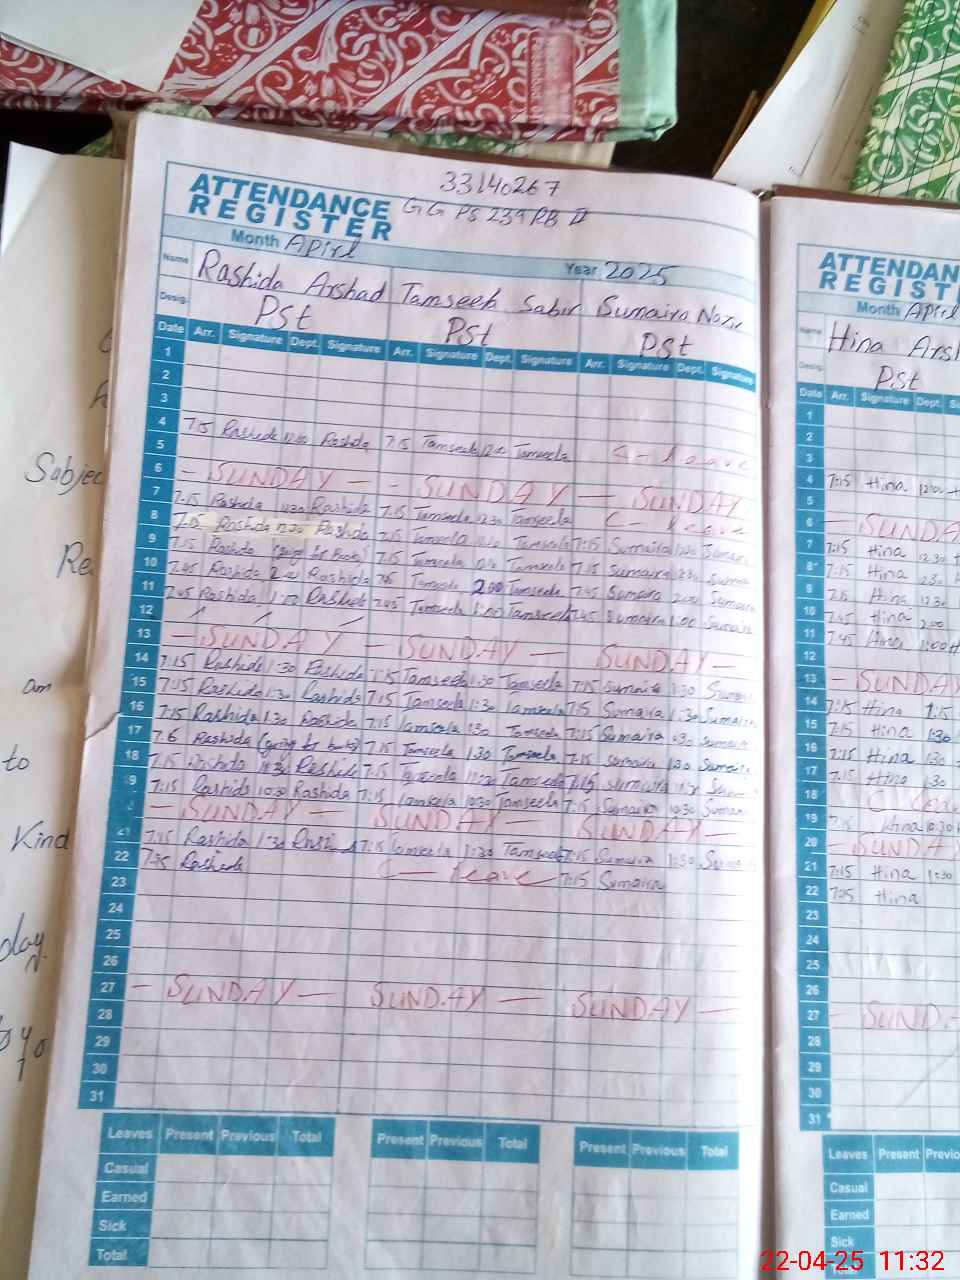 33140267
ATTENDANCE REGISTER
GGPS 239 RB II
Month April Year 2025
Name Rashida Arshad Tamseela Sabir Sumaira Nazir
Desig. Pst Pst Pst
Date Arr. Signature Dept. Signature Arr. Signature Dept. Signature Arr. Signature Dept. Signature
1
2
3
4 7:15 Rashida Rashida 7:15 Tamseela 12:00 Tamseela C - leave
5
6 - SUNDAY - - SUNDAY - SUNDAY
7 7:15 Rashida 12:30 Rashida 7:15 Tamseela 12:30 Tamseela C - leave
8 7:15 Rashida 12:30 Rashida 7:15 Tamseela Tamseela 7:15 Sumaira
9 7:15 Rashida 7:15 Tamseela Tamseela 7:15 Sumaira
10 7:45 Rashida 2:00 Rashida 7:45 Tamseela 2:00 Tamseela 7:45 Sumaira 2:00 Sumaira
11 7:45 Rashida 1:00 Rashida 7:45 Tamseela 1:00 Tamseela 7:45 Sumaira 1:00 Sumaira
12
13 - SUNDAY - SUNDAY - SUNDAY -
14 7:15 Rashida 1:30 Rashida 7:15 Tamseela 1:30 Tamseela 7:15 Sumaira 1:30
15 7:15 Rashida 1:30 Rashida 7:15 Tamseela 1:30 Tamseela 7:15 Sumaira 1:30 Sumaira
16 7:15 Rashida 1:30 Rashida 7:15 Tamseela 1:30 Tamseela 7:15 Sumaira 1:30 Sumaira
17 Rashida (going for books) 7:15 Tamseela 1:30 Tamseela 7:15 Sumaira 1:30 Sumaira
18 7:15 Rashida Rashida 7:15 Tamseela Tamseela 7:15 Sumaira
9 7:15 Rashida 10:30 Rashida 7:15 Tamseela 10:30 Tamseela 7:15 Sumaira 10:30
- SUNDAY - SUNDAY - SUNDAY -
21 7:15 Rashida 1:30 Rashida 7:15 Tamseela 1:30 Tamseela 7:15 Sumaira 1:30
22 Rashida C - leave 7:15 Sumaira
23
24
25
26
27 - SUNDAY - SUNDAY - SUNDAY -
28
29
30
31
Leaves Present Previous Total Present Previous Total Present Previous Total
Casual
Earned
Sick
Total
ATTENDAN
REGIST
Month April
Name Hina
Pst
Date Arr. Signature Dept.
1
2
3
4 7:15 Hina
5
6 - SUNDA
7 7:15 Hina 12:30
8 7:15 Hina 12:30
9 Hina 12:30
10 7:45 Hina 2:00
11 7:45 Hina 1:00
12
13 - SUNDAY
14 7:15 Hina
15 7:15 Hina 1:30
16 7:15 Hina 1:30
17 7:15 Hina 1:30
18 C leave
19 7:15 Hina 10:30
20 - SUNDAY
21 7:15 Hina 1:30
22 Hina
23
24
25
26
27 - SUNDA
28
29
30
31
Leaves Present
Casual
Earned
Sick
Subjec
Re
am
to
Kind
day
22-04-25 11:32